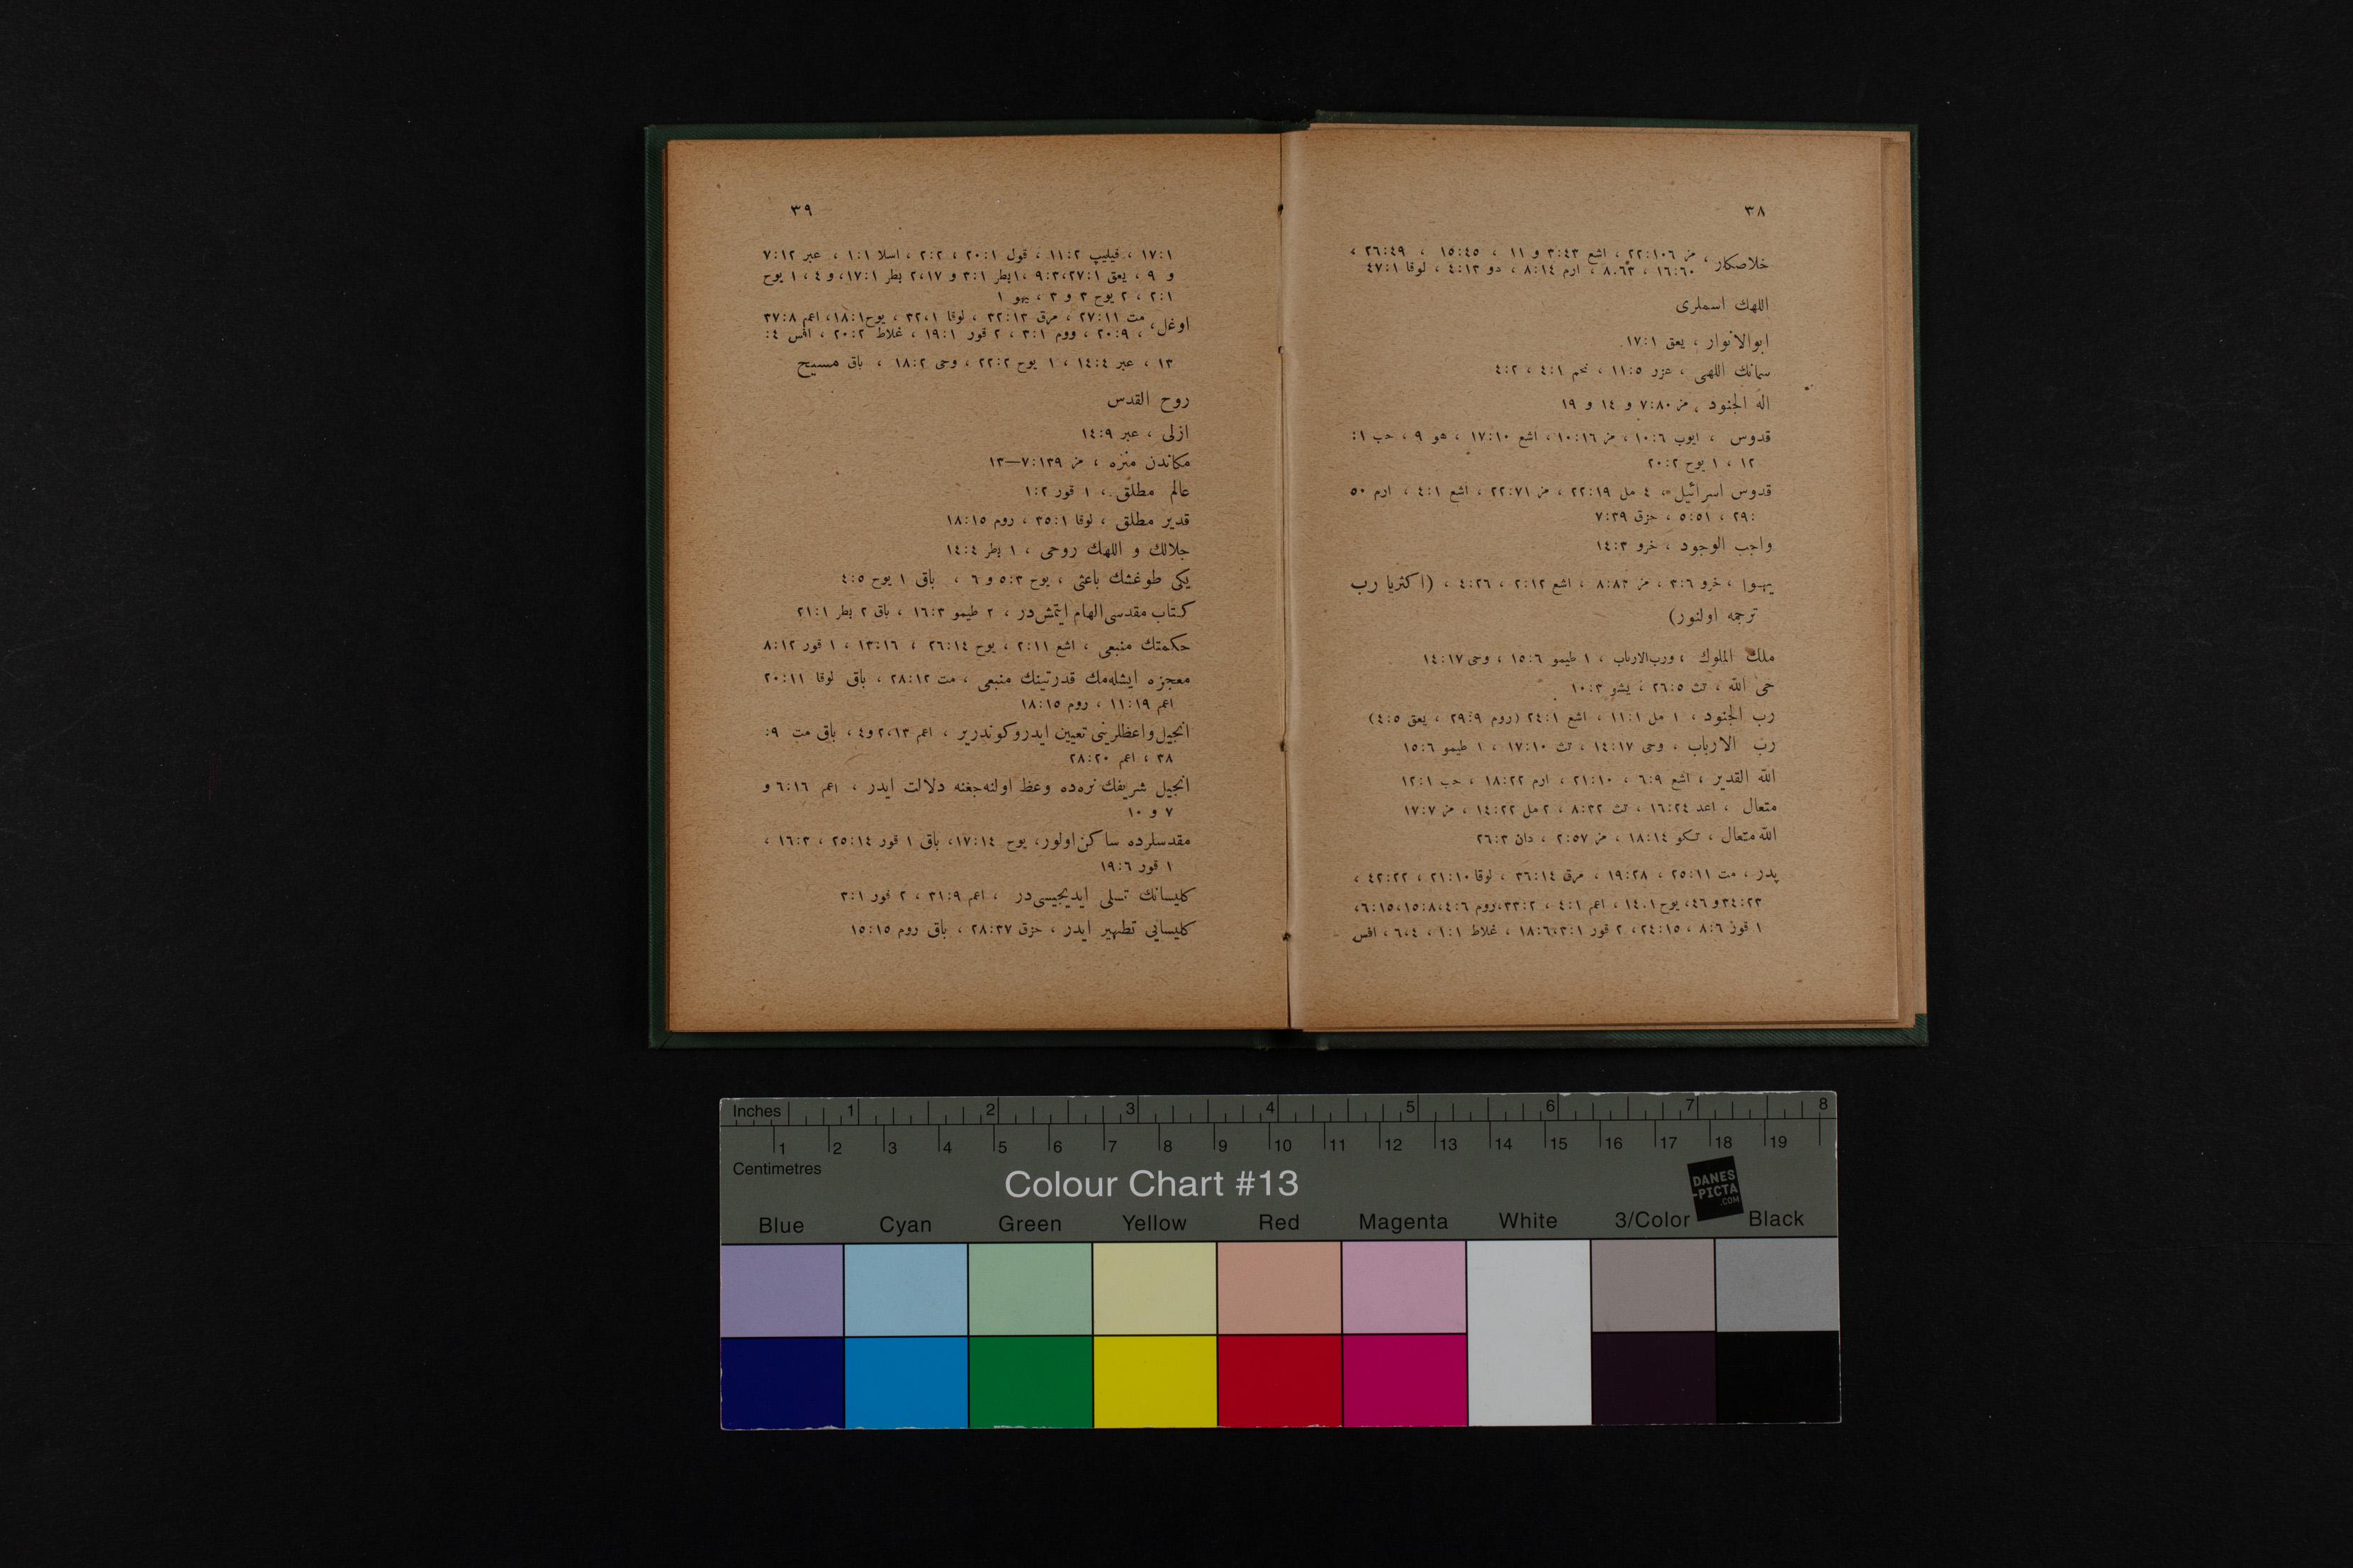 ٣٨
خلاصكار ، مز ٢٢:١٠٦ ، اشع ٣:٤٣ و ١١ ، ١٥:٤٥ ، ٢٦:٤٩ ،
١٦:٦٠ ، ٨،٦٣ ، ارم ٨:١٤ ، دو ٤:١٣ ، لوقا ٤٧:١
اللهك اسملرى
ابوالانوار ، يعق ١٧:١
سمانك اللهى ، عزر ١١:٥ ، نحم ٤:١ ، ٤:٢
اله الجنود ، مز ٧:٨٠ و ١٤ و ١٩
قدوس ، ايوب ١٠:٦ ، مز ١٠:١٦ ، اشع ١٧:١٠ ، هو ٩ ، حب ١:
١٢ ، ١ يوح ٢٠:٢
قدوس اسرائيل ، ٤ مل ٢٢:١٩ ، مز ٢٢:٧١ ، اشع ٤:١ ، ارم ٥٠
:٢٩ ، ٥:٥١ ، حزق ٧:٣٩
واجب الوجود ، خرو ١٤:٣
يهوا ، خرو ٣:٦ ، مز ٨:٨٣ ، اشع ٢:١٢ ، ٤:٢٦ ، (اكثريا رب
ترجمه اولنور)
ملك الملوك ، ورب‌الارباب ، ١ طيمو ١٥:٦ ، وحى ١٤:١٧
حى الله ، تث ٢٦:٥ ، يشو ١٠:٣
رب الجنود ، ١ مل ١١:١ ، اشع ٢٤:١ (روم ٢٩:٩ ، يعق ٤:٥)
رب الارباب ، وحى ١٤:١٧ ، تث ١٧:١٠ ، ١ طيمو ١٥:٦
الله القدير ، اشع ٦:٩ ، ٢١:١٠ ، ارم ١٨:٢٢ ، حب ١٢:١
متعال ، اعد ١٦:٢٤ ، تث ٨:٣٢ ، ٢ مل ١٤:٢٢ ، مز ١٧:٧
الله متعال ، تكو ١٨:١٤ ، مز ٢:٥٧ ، دان ٢٦:٣
پدر ، مت ٢٥:١١ ، ١٩:٢٨ ، مرق ٣٦:١٤ ، لوقا ٢١:١٠ ، ٤٢:٢٢ ،
٣٤:٢٣ و ٤٦، يوح ١٤،١ ، اعم ٤:١ ، ٣٣:٢،روم ٤:٦،١٥:٨، ٦:١٥،
١ قور ٨:٦ ، ٢٤:١٥، ٢ قور ٣:١،١٨:٦ ، غلاط ١:١ ، ٦،٤ ، افس
٣٩
١٧:١ ، فيليپ ١١:٢ ، قول ٢٠:١ ، ٢:٢ ، اسلا ١:١ ، عبر ٧:١٢
و ٩ ، يعق ٢٧:١،٩:٣ ،١بطر ٣:١ و ٢،١٧ بطر ١٧:١، و ٤ ، ١ يوح
٢:١ ، ٢ يوح ٣ و ٣ ، يهو ١
اوغل، مت ٢٧:١١ ، مرق ٣٢:١٣ ، لوقا ٣٢،١ ، يوح١٨:١، اعم ٣٧:٨
، ٢٠:٩ ، ووم ٣:١ ، ٢ قور ١٩:١ ، غلاط ٢٠:٢ ، افس ٤:
١٣ ، عبر ١٤:٤ ، ١ يوح ٢٢:٢ ، وحى ١٨:٢ ، باق مسيح
روح القدس
ازلى ، عبر ١٤:٩
مكاندن منزه ، مز ٧:١٣٩—١٣
عالم مطلق ، ١ قور ١:٢
قدير مطلق ، لوقا ٣٥:١ ، روم ١٨:١٥
جلالك و اللهك روحى ، ١ بطر ١٤:٤
يكى طوغشك باعثى ، يوح ٥:٣ و ٦ ، باق ١ يوح ٤:٥
كتاب مقدسى الهام ايتمش‌در ، ٢ طيمو ١٦:٣ ، باق ٢ بطر ٢١:١
حكمتك منبعى ، اشع ٢:١١ ، يوح ٢٦:١٤ ، ١٣:١٦ ، ١ قور ٨:١٢
معجزه ايشله‌مك قدرتينك منبعى ، مت ٢٨:١٢ ، باق لوقا ٢٠:١١
اعم ١١:١٩ ، روم ١٨:١٥
انجيل واعظلرينى تعيين ايدر وكوندرير ، اعم ٢،١٣ و٤ ، باق مت ٩:
٣٨ ، اعم ٢٨:٢٠
انجيل شريفك نره‌ده وعظ اولنه‌جغنه دلالت ايدر ، اعم ٦:١٦ و
٧ و ١٠
مقدسلرده ساكن اولور، يوح ١٧:١٤، باق ١ قور ٢٥:١٤ ، ١٦:٣ ،
١ قور ١٩:٦
كليسانك تسلى ايديجيسى‌در ، اعم ٣١:٩ ، ٢ قور ٣:١
كليسايى تطهير ايدر ، حزق ٢٨:٣٧ ، باق روم ١٥:١٥
Inches 1 2 3 4 5 6 7 8
1 2 3 4 5 6 7 8 9 10 11 12 13 14 15 16 17 18 19
Centimetres
Colour Chart #13
DANES
-PICTA
.COM
Blue Cyan Green Yellow Red Magenta White 3/Color Black